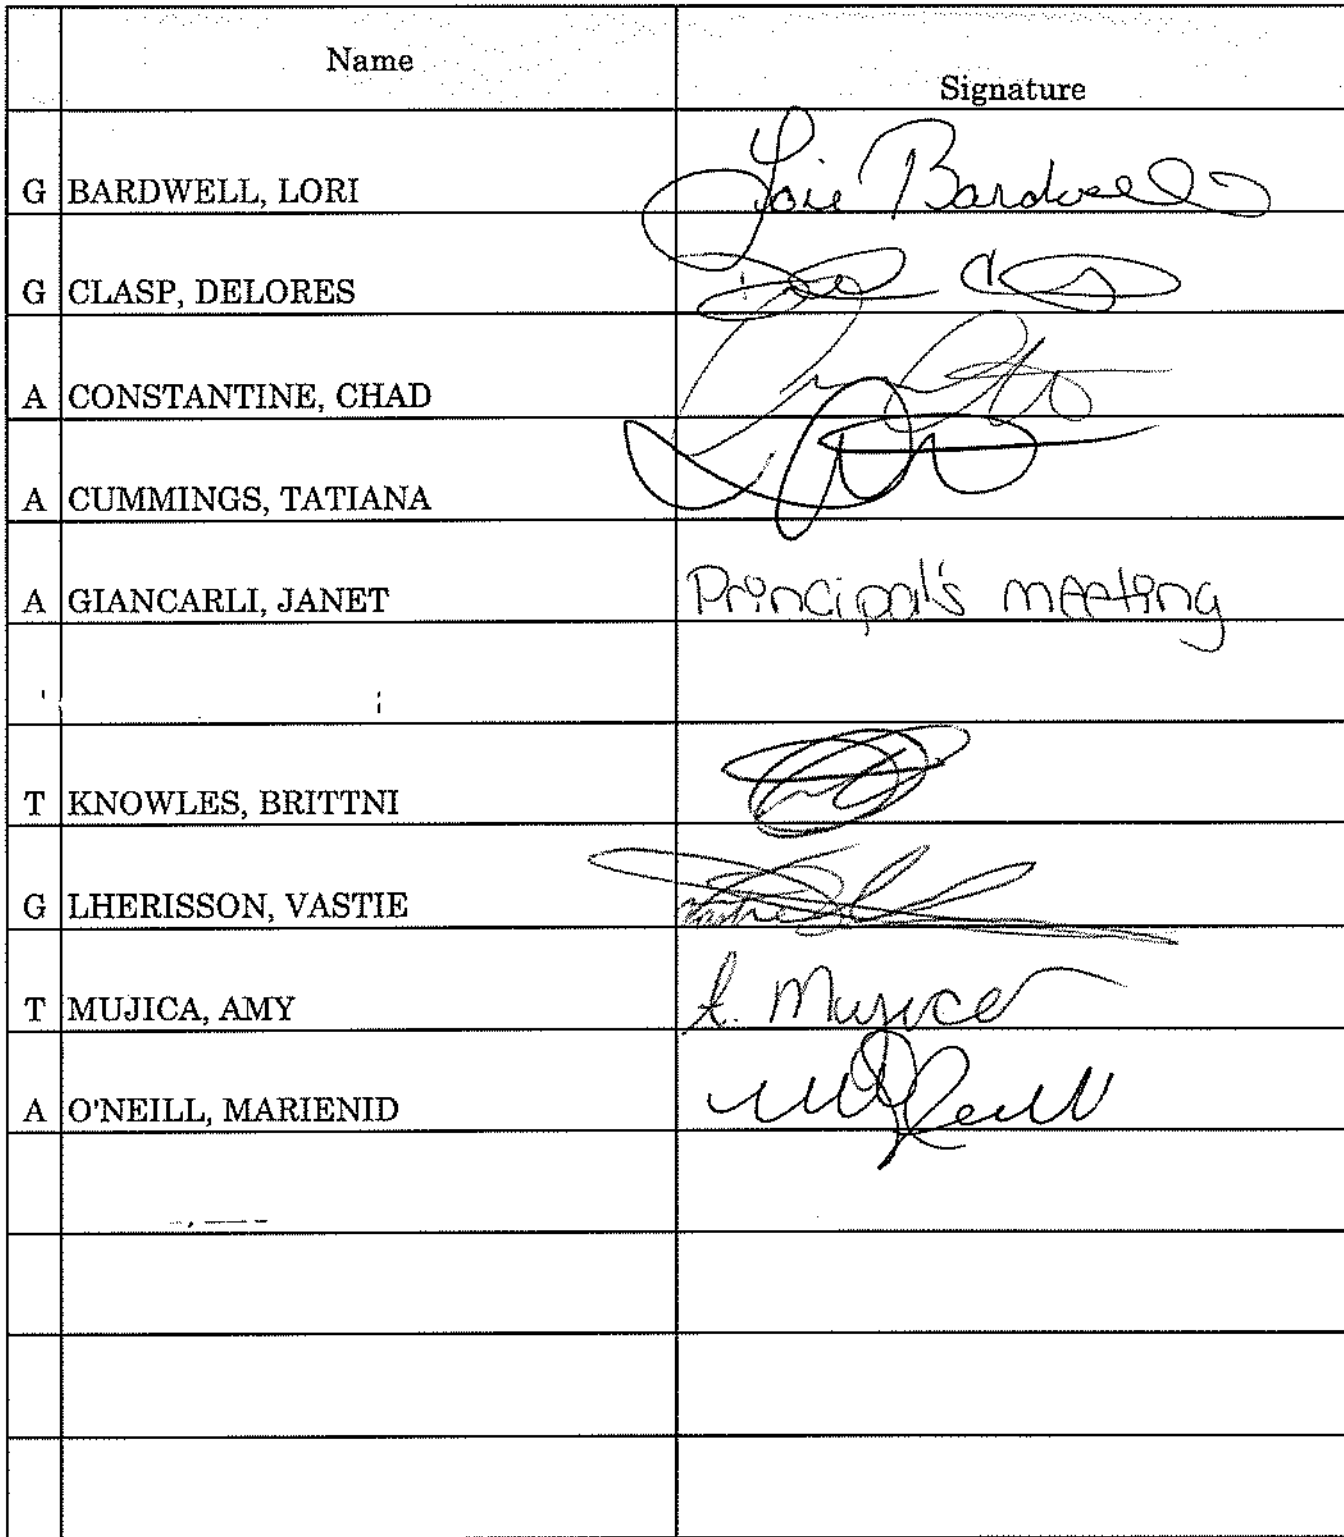 Name Signature
G BARDWELL, LORI Lori Bardwell
G CLASP, DELORES
A CONSTANTINE, CHAD
A CUMMINGS, TATIANA
A GIANCARLI, JANET Principal's meeting
T KNOWLES, BRITTNI
G LHERISSON, VASTIE
T MUJICA, AMY A. Mujica
A O'NEILL, MARIENID